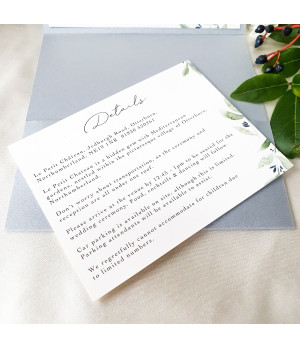 Details
Le Petit Château, Jedburgh Road, Otterburn,
Northumberland. NE19 1NR 01830 520261
Le Petit Château is a hidden gem with Mediterranean
gardens, nestled within the picturesque village of Otterburn,
Northumberland.
Don't worry about transportation, as the ceremony and
reception are all under one roof.
Please arrive at the venue by 12:45 - 1pm to be seated for the
wedding ceremony. Food, cocktails & dancing will follow
Car parking is available on site, although this is limited.
Parking attendants will be available to assist.
We regretfully cannot accommodate for children due
to limited numbers.